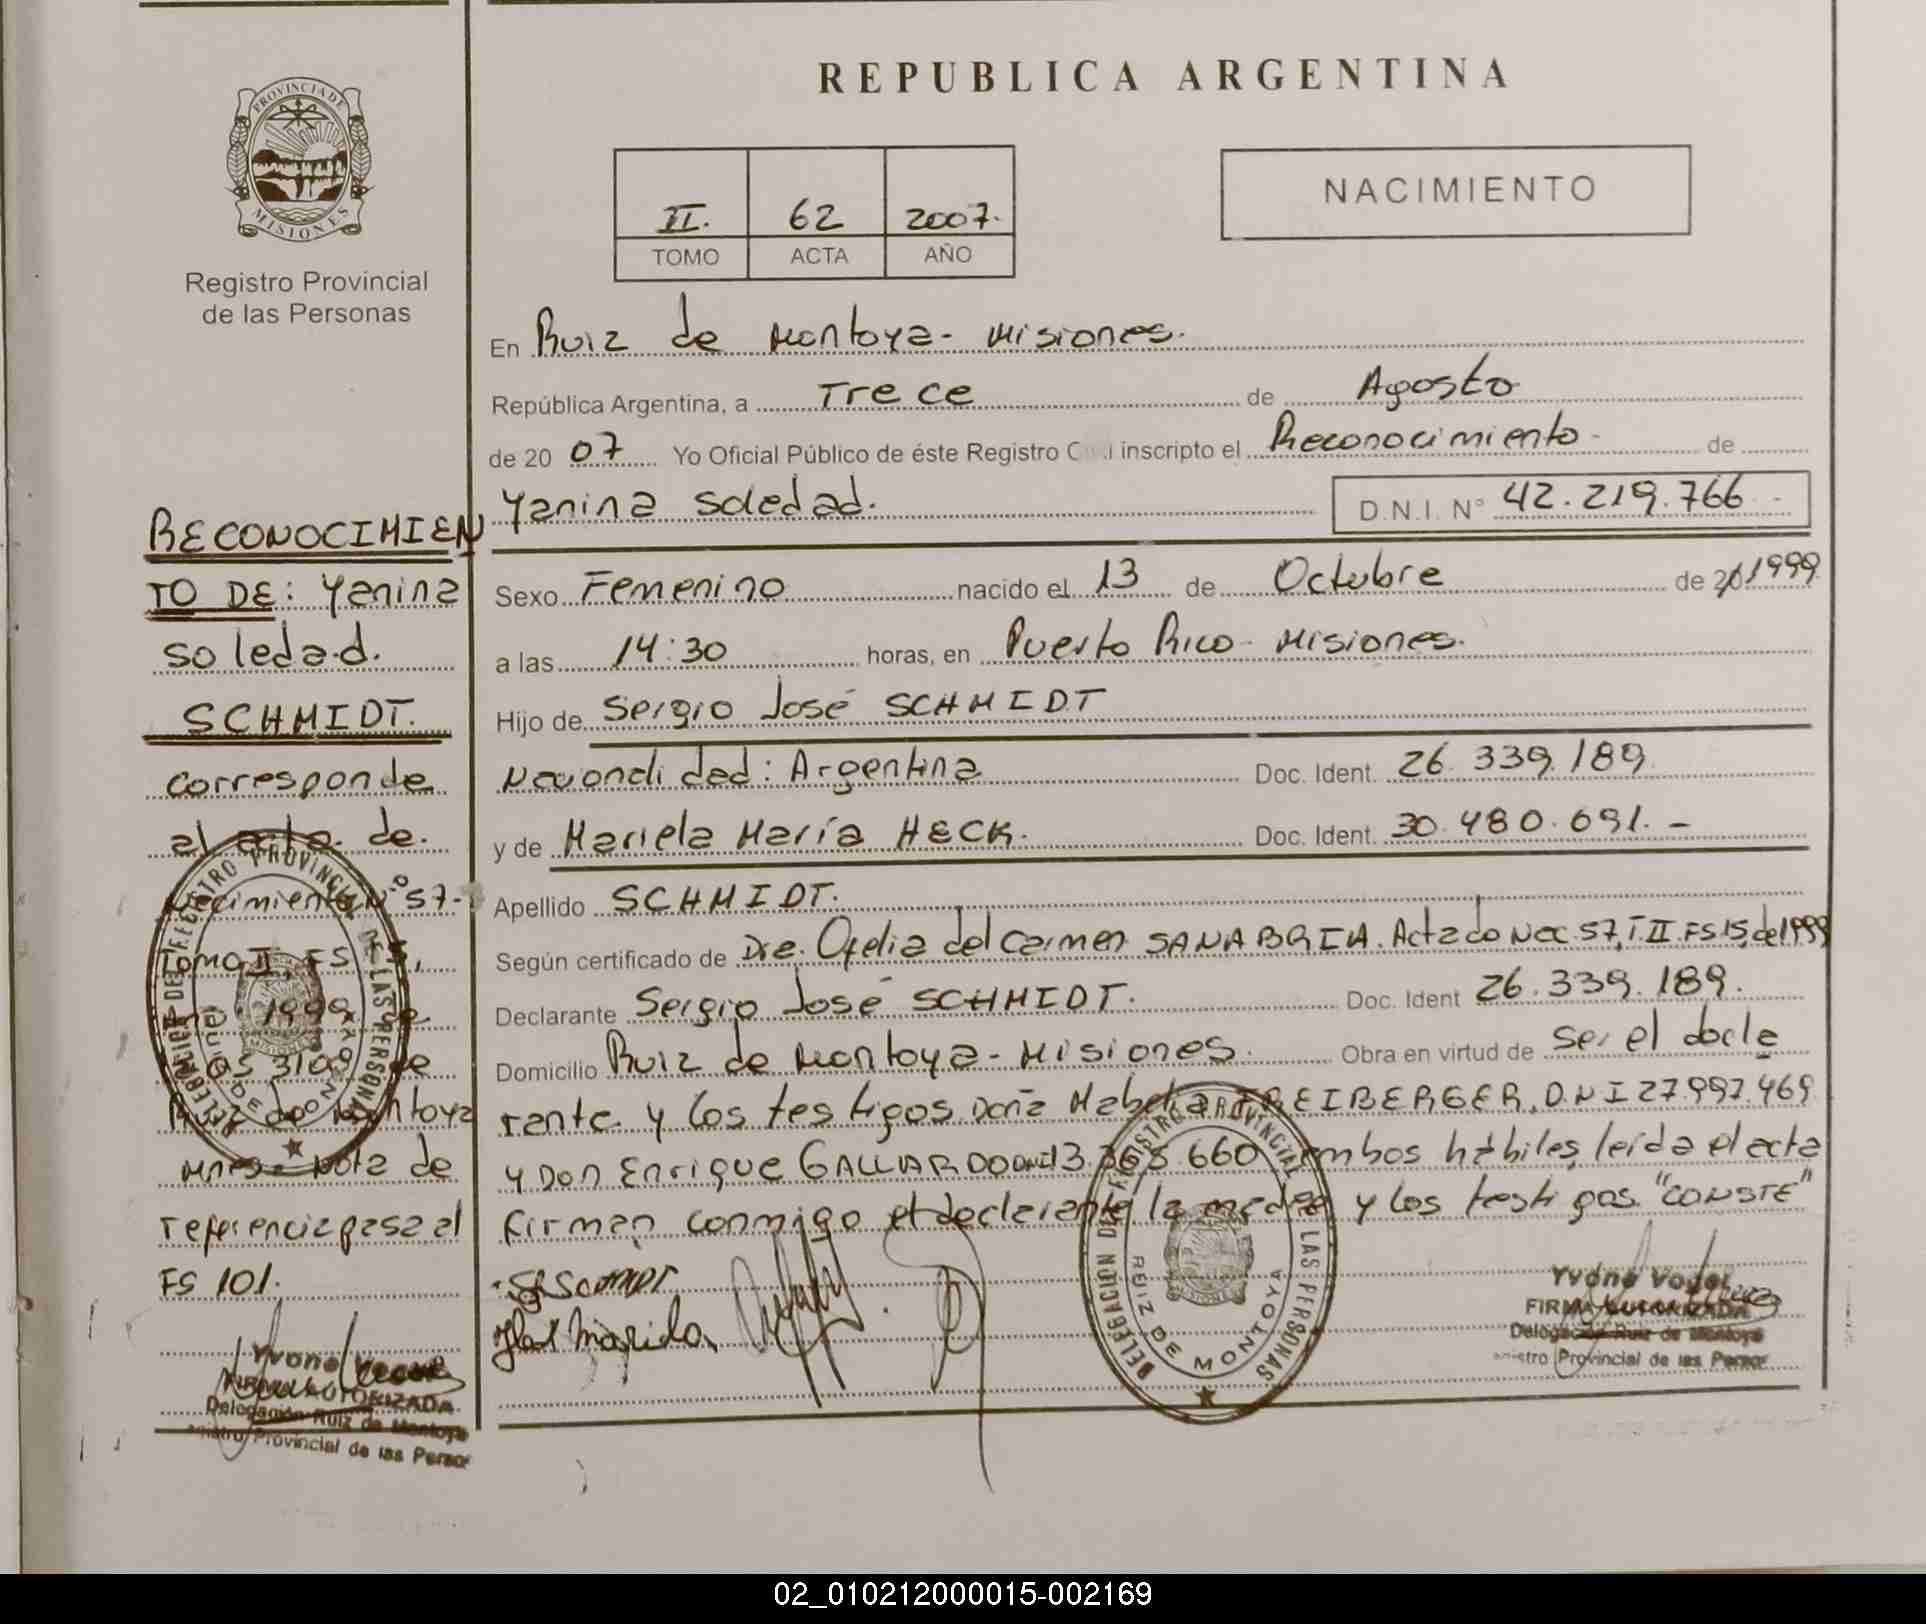 REPUBLICA ARGENTINA
PROVINCIA DE MISIONES
Registro Provincial
de las Personas
II. 62 2007.
TOMO ACTA AÑO
NACIMIENTO
En Ruiz de Montoya - Misiones.
República Argentina, a Trece de Agosto
de 20 07 Yo Oficial Público de éste Registro inscripto el Reconocimiento - de
Yanina Soledad. D.N.I. N° 42.219.766 -
Sexo Femenino nacido el 13 de Octubre de 1999
a las 14:30 horas, en Puerto Rico - Misiones.
Hijo de Sergio José SCHMIDT
Argentina Doc. Ident. 26.339.189
y de Mariela María HECK. Doc. Ident. 30.480.691. -
Apellido SCHMIDT.
Según certificado de Dra. Ofelia del Carmen SANABRIA. Acta de Nac 57, T II FS 15, de 1999
Declarante Sergio José SCHMIDT. Doc. Ident 26.339.189.
Domicilio Ruiz de Montoya - Misiones. Obra en virtud de ser el decla
rante y los testigos Doña FREIBERGER, D.N.I 27.997.469
y Don Enrique GALLARDO 660 ambos hábiles, leída el acta
firman conmigo el declarante la madre y los testigos "CONSTE"
RECONOCIMIEN
TO DE: Yanina
Soledad.
SCHMIDT.
corresponde
al acta de.
Nacimiento N° 57-
Tomo II, FS
1999
Ruiz de Montoya
Nota de
referencia pasa al
FS 101.
DELEGACION DEL REGISTRO PROVINCIAL DE LAS PERSONAS
RUIZ DE MONTOYA
Yvone
FIRMA AUTORIZADA
Delegación Ruiz de Montoya
Provincial de las Person
DELEGACION DEL REGISTRO PROVINCIAL DE LAS PERSONAS
RUIZ DE MONTOYA
Yvone Vogel
FIRMA AUTORIZADA
Delegación Ruiz de Montoya
Provincial de las Person
02_010212000015-002169